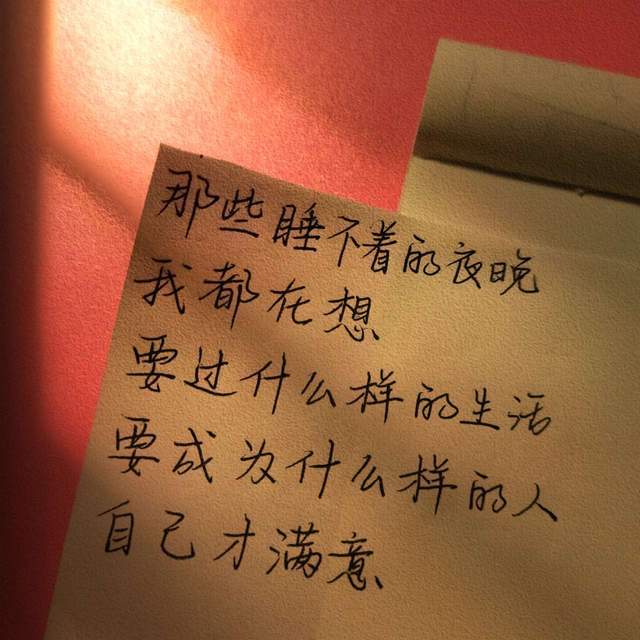 那些睡不着的夜晚
我都在想
要过什么样的生活
要成为什么样的人
自己才满意